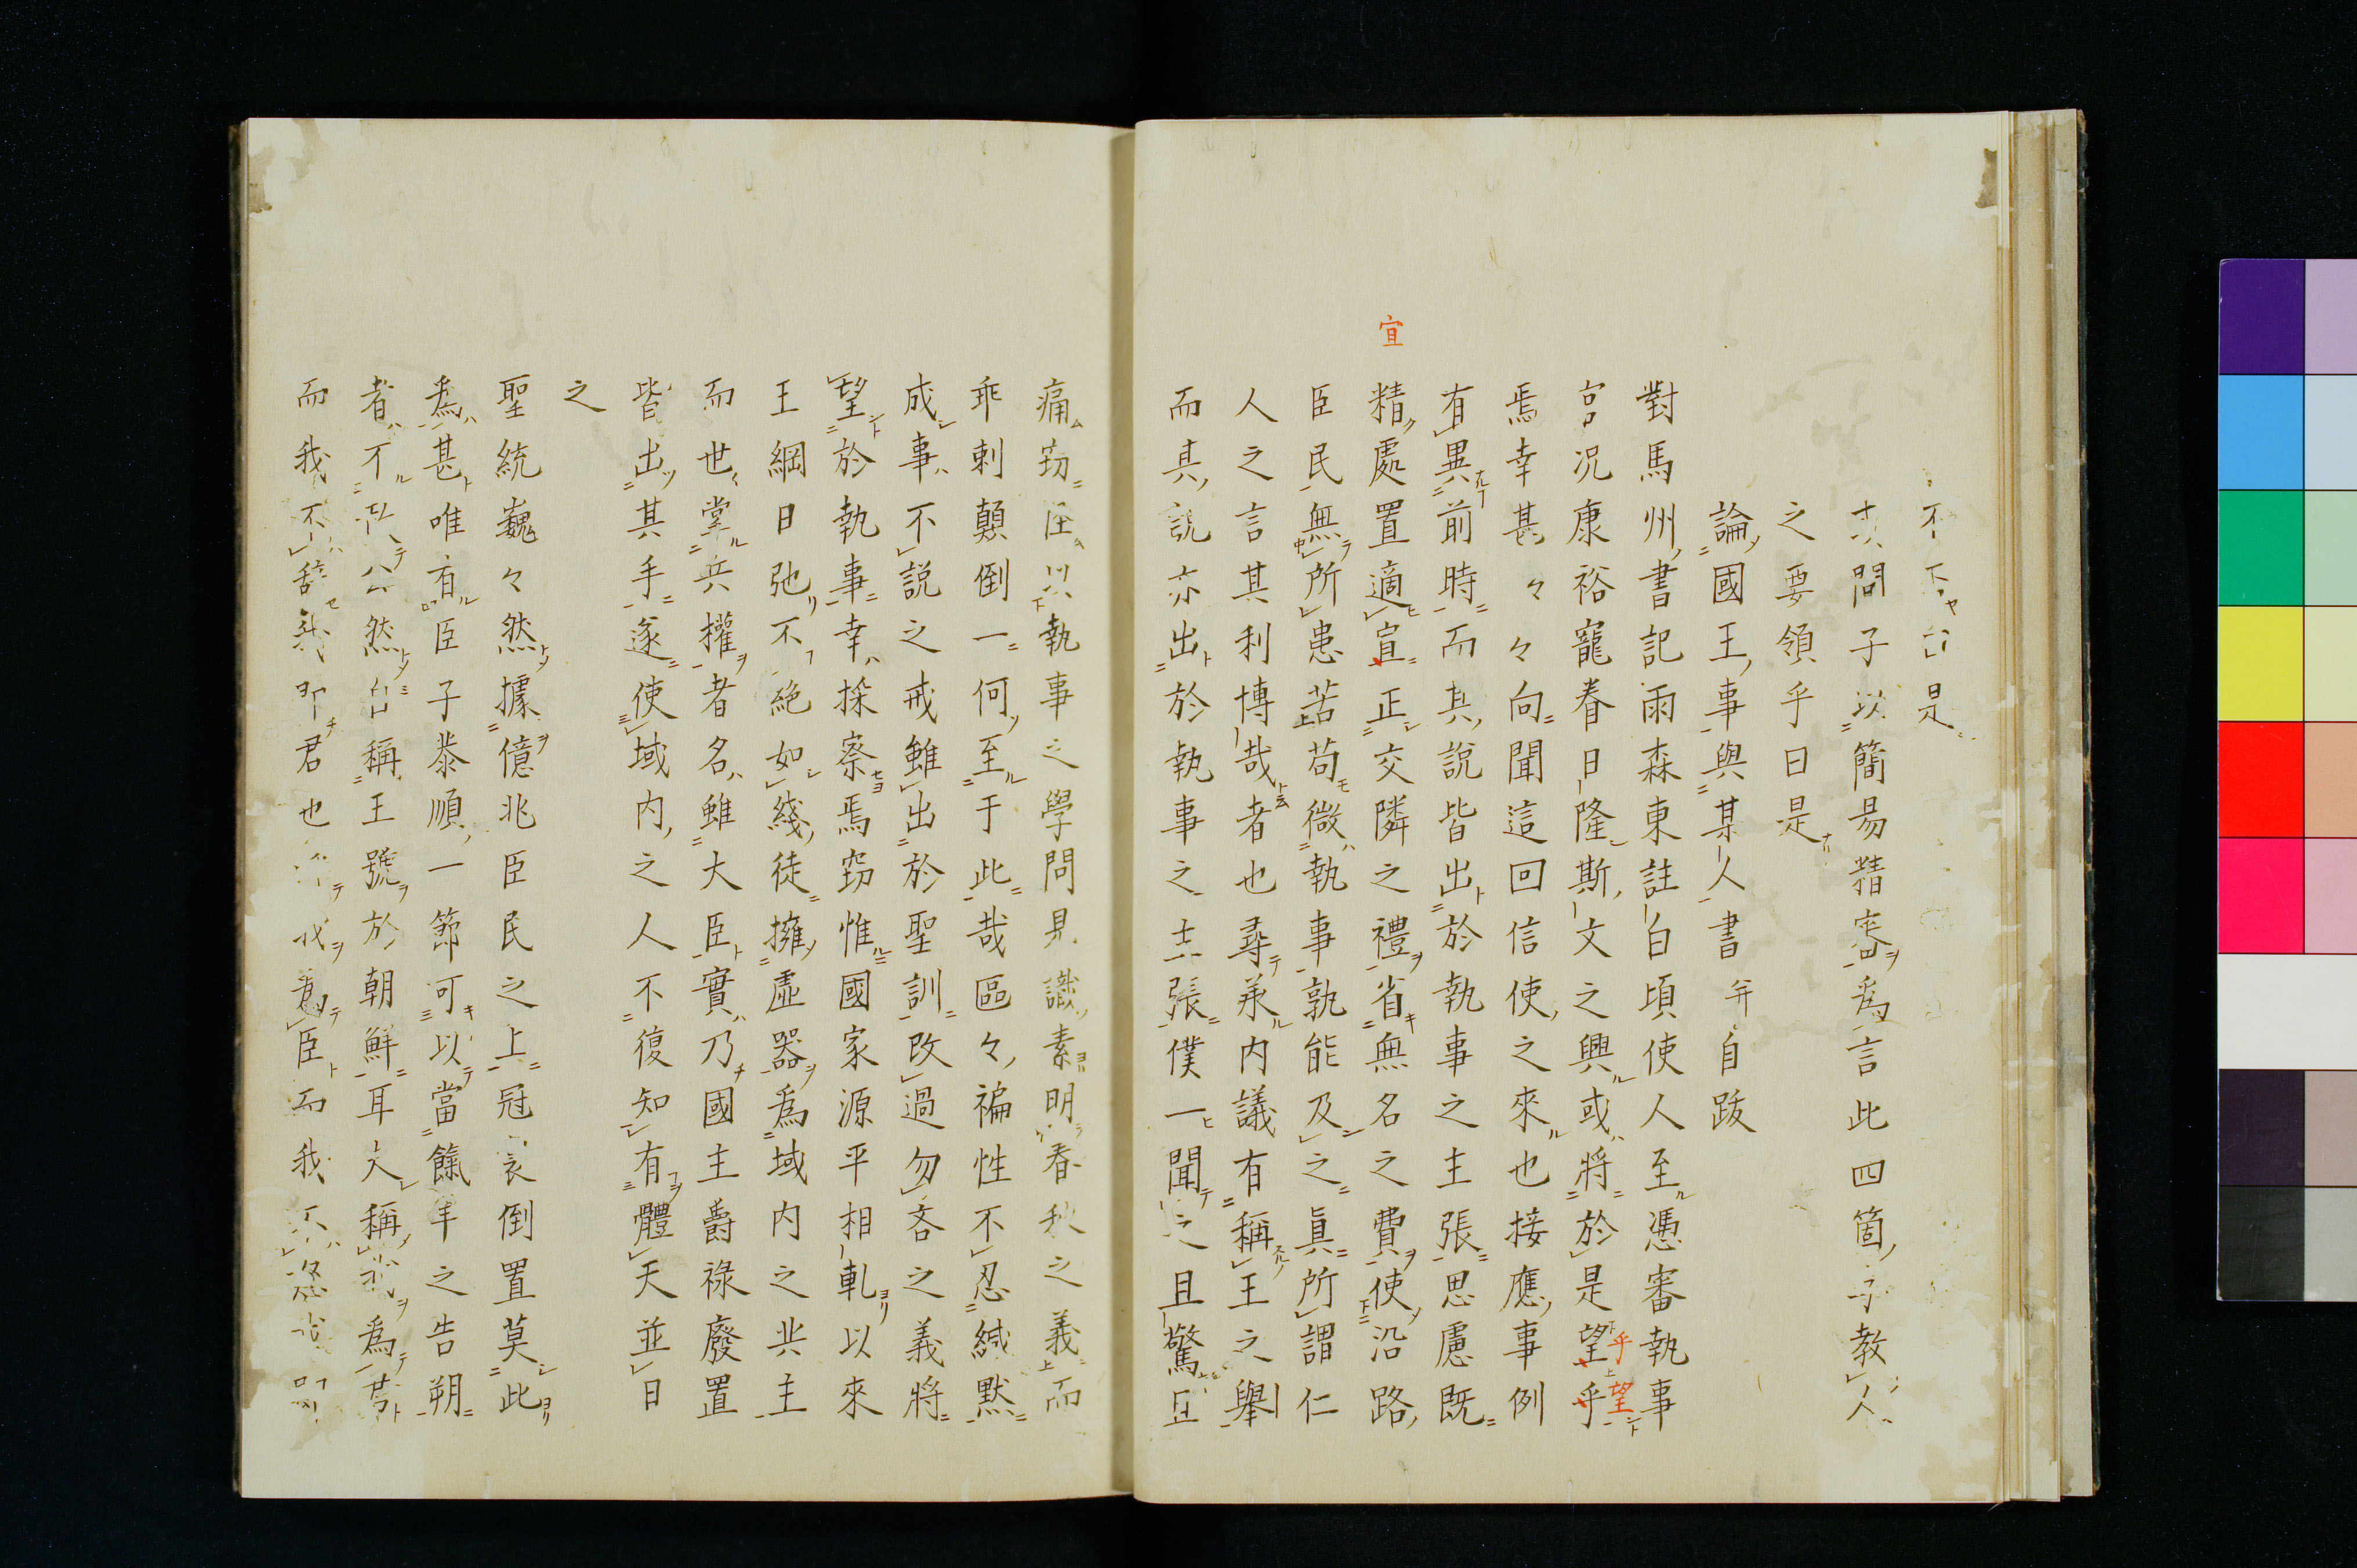 是
問子以簡易精密為言此四箇教人
之要領乎曰是
論國王事與某人書并自跋
對馬州書記雨森東註白頃使人至憑審執事
宮况康裕寵眷日隆斯文之興或將於是望乎
乎望
焉幸甚々々向聞這回信使之來也接應事例
有異前時而其說皆出於執事之主張思慮既
宜
精處置適宣正交隣之禮省無名之費使沿路
臣民無所患苦苟微執事孰能及之眞所謂仁
人之言其利博哉者也尋承内議有稱王之舉
而其說亦出於執事之主張僕一聞之且驚且
痛窃以執事之學問見識素明春秋之義而
乖剌顛倒一何至于此哉區々褊性不忍緘黙
成事不説之戒雖出於聖訓改過勿吝之義將
望於執事幸採察焉窃惟國家源平相軋以來
王綱日弛不絶如綫徒擁虛器為域内之共主
而世掌兵權者名雖大臣實乃國主爵祿廢置
皆出其手遂使域内之人不復知有體天並日
之
聖統巍々然據億兆臣民之上冠裳倒置莫此
為甚唯有臣子恭順一節可以當餼羊之告朔
者不然稱王號於朝鮮耳人稱我為君
而我不辞我即君也我為臣而我不